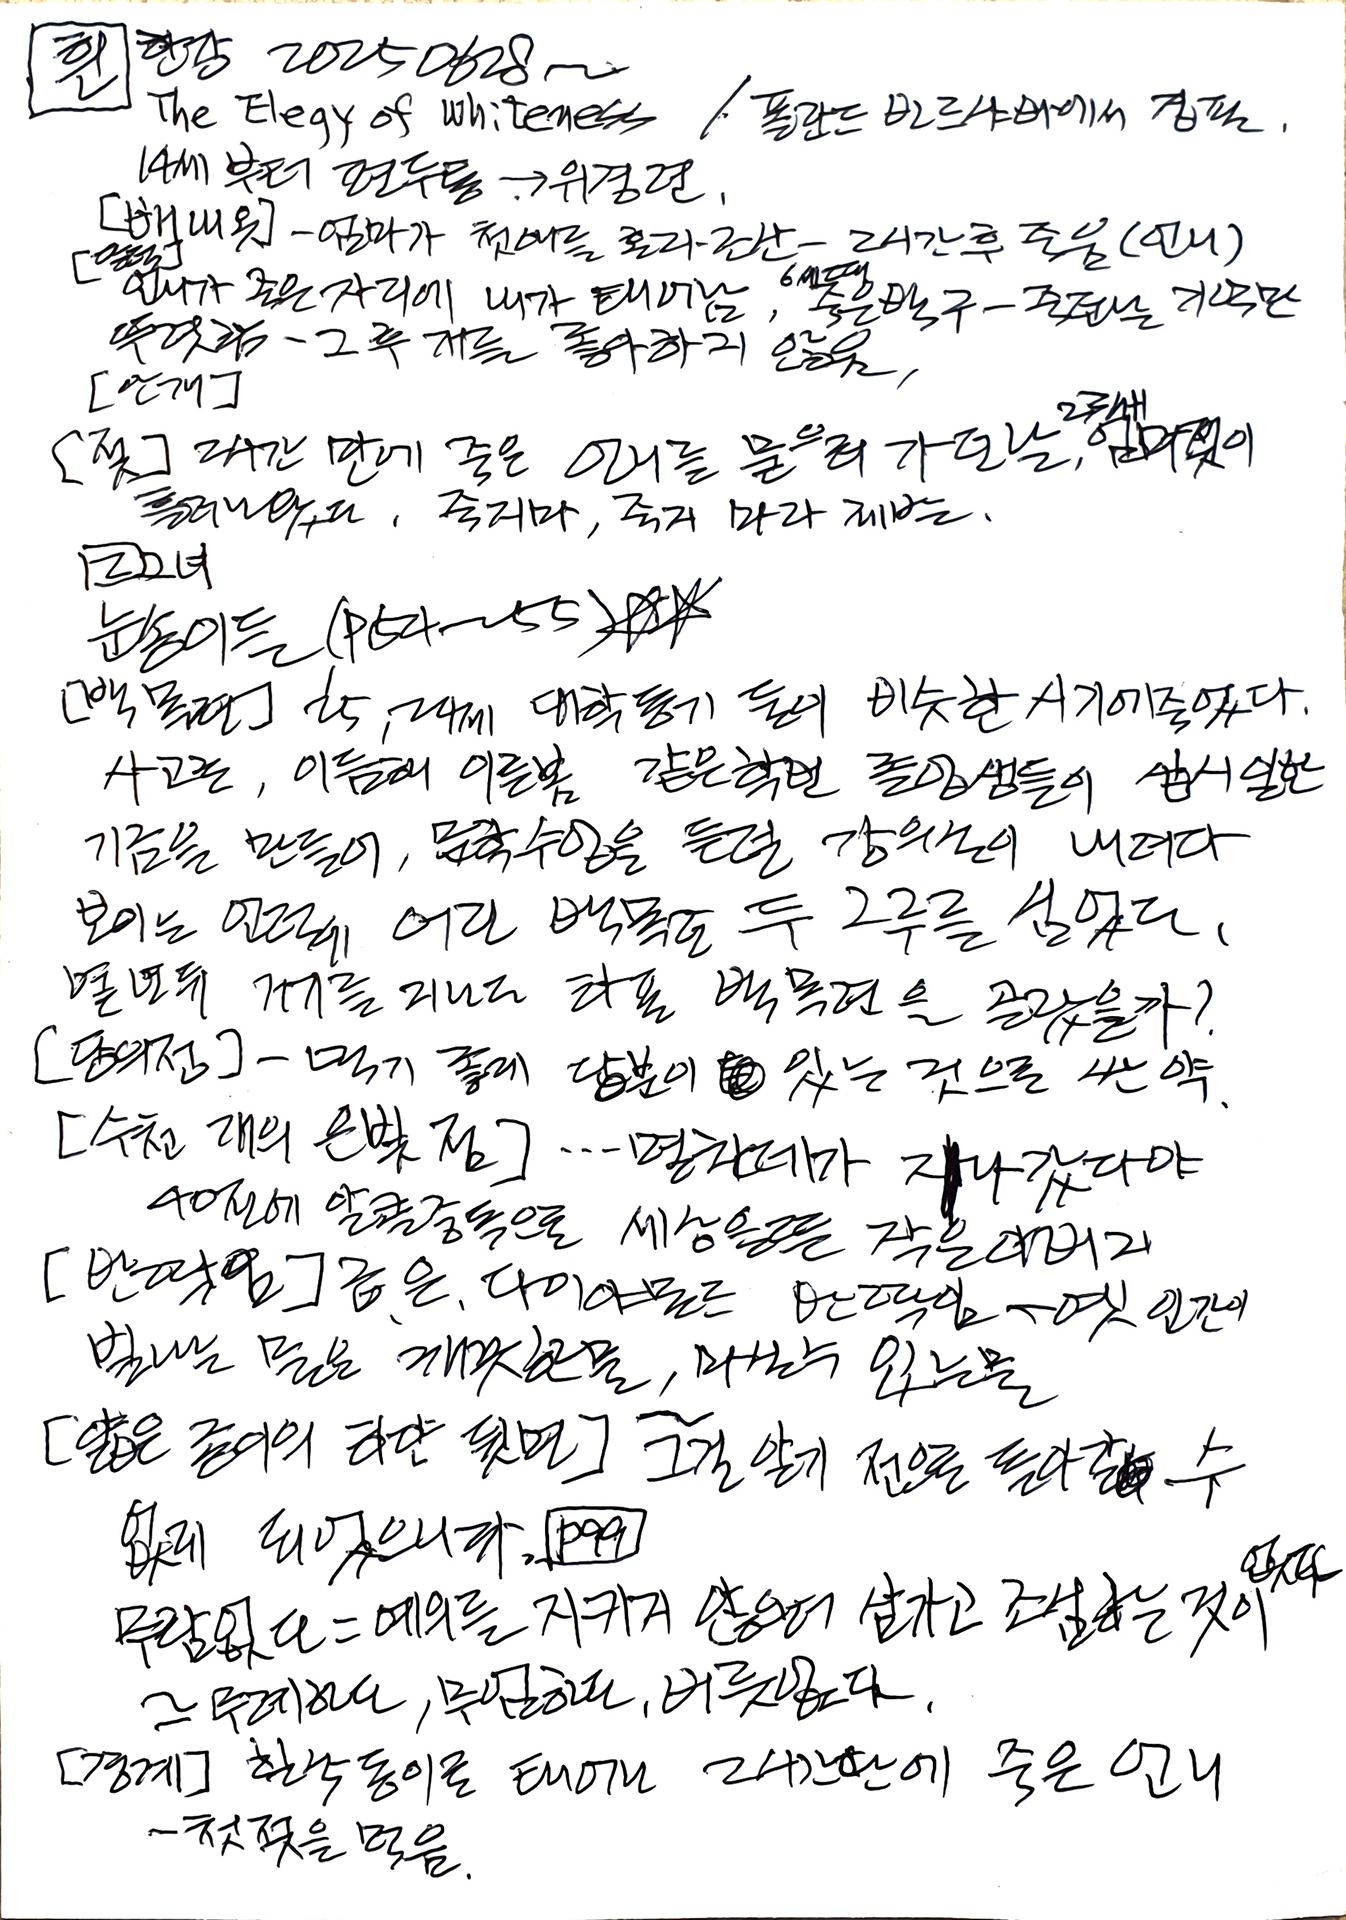 흰 한강 20250628~
The Elegy of Whiteness / 폴란드 바르샤바에서 집필.
14세부터 편두통 → 위경련.
[배내옷] - 엄마가 첫애를 혼자 출산 - 2시간후 죽음(언니)
언니가 죽은 자리에 내가 태어남, 6세때 죽은 백구 - 쥐잡는 기억만
뚜렷함 - 그후 개를 좋아하지 않음,
[안개]
[젖] 2시간 만에 죽은 언니를 묻으러 가던날, 그림새 엄마젖이
흘러나왔다. 죽지마, 죽지 마라 제발.
2 그녀
눈송이들 (P54~55)☆☆
[백목련] 25, 24세 대학동기 둘이 비슷한 시기에 죽었다.
사고로, 이듬해 이른봄 같은학번 졸업생들이 십시일반
기금을 만들어, 문학수업을 듣던 강의실이 내려다
보이는 언덕에 어린 백목련 두 그루를 심었다.
몇년뒤 거기를 지나다 하필 백목련을 골랐을까?
[당의정] - 먹기 좋게 당분이 있는 것으로 싼 약.
[수천 개의 은빛 점] ... 멸치떼가 지나갔다야
40전에 알콜중독으로 세상을 뜬 작은아버지
[반짝임] 금, 은, 다이아몬드 반짝임 - 옛 인간이
빛나는 물은 깨끗한물, 마실수 있는물
[얇은 종이의 하얀 뒷면] 그걸 알기 전으로 돌아갈 수
없게 되었습니다. P99
무람없다 = 예의를 지키지 않으며 삼가고 조심하는 것이 없다
≃ 무례하다, 무엄하다, 버릇없다.
[경계] 한삭둥이로 태어나 2시간만에 죽은 언니
- 첫 젖을 먹음.